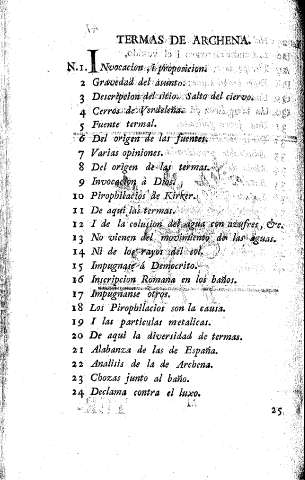 TERMAS DE ARCHENA.
N.1. INvocacion, i proposicion.
2 Gravedad del asunto.
3 Descripcion del sitio. Salto del ciervo.
4 Cerros de Verdeleña.
5 Fuente termal.
6 Del origen de las fuentes.
7 Varias opiniones.
8 Del origen de las termas.
9 Invocacion à Dios.
10 Pirophilacios de Kirker.
11 De aqui las termas.
12 I de la colusion del agua con azufres, &c.
13 No vienen del movimiento de las aguas.
14 Ni de los rayos del sol.
15 Impugnase á Democrito.
16 Inscripcion Romana en los baños.
17 Impugnanse otros.
18 Los Pirophilacios son la causa.
19 I las particulas metalicas.
20 De aqui la diversidad de termas.
21 Alabanza de las de España.
22 Analisis de la de Archena.
23 Chozas junto al baño.
24 Declama contra el luxo.
25